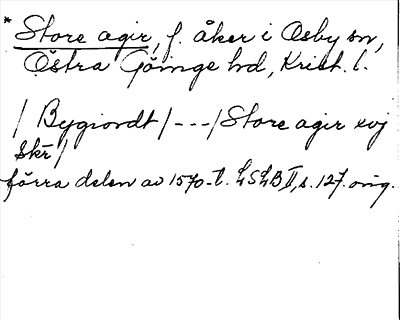 * Store agir, f. åker i Osby sn,
Östra Göinge hd, Krist. l.
/ Bygiordt / - - - / Store agir xvj
skr /
förra delen av 1570-t. LSLB II, s. 127. orig.